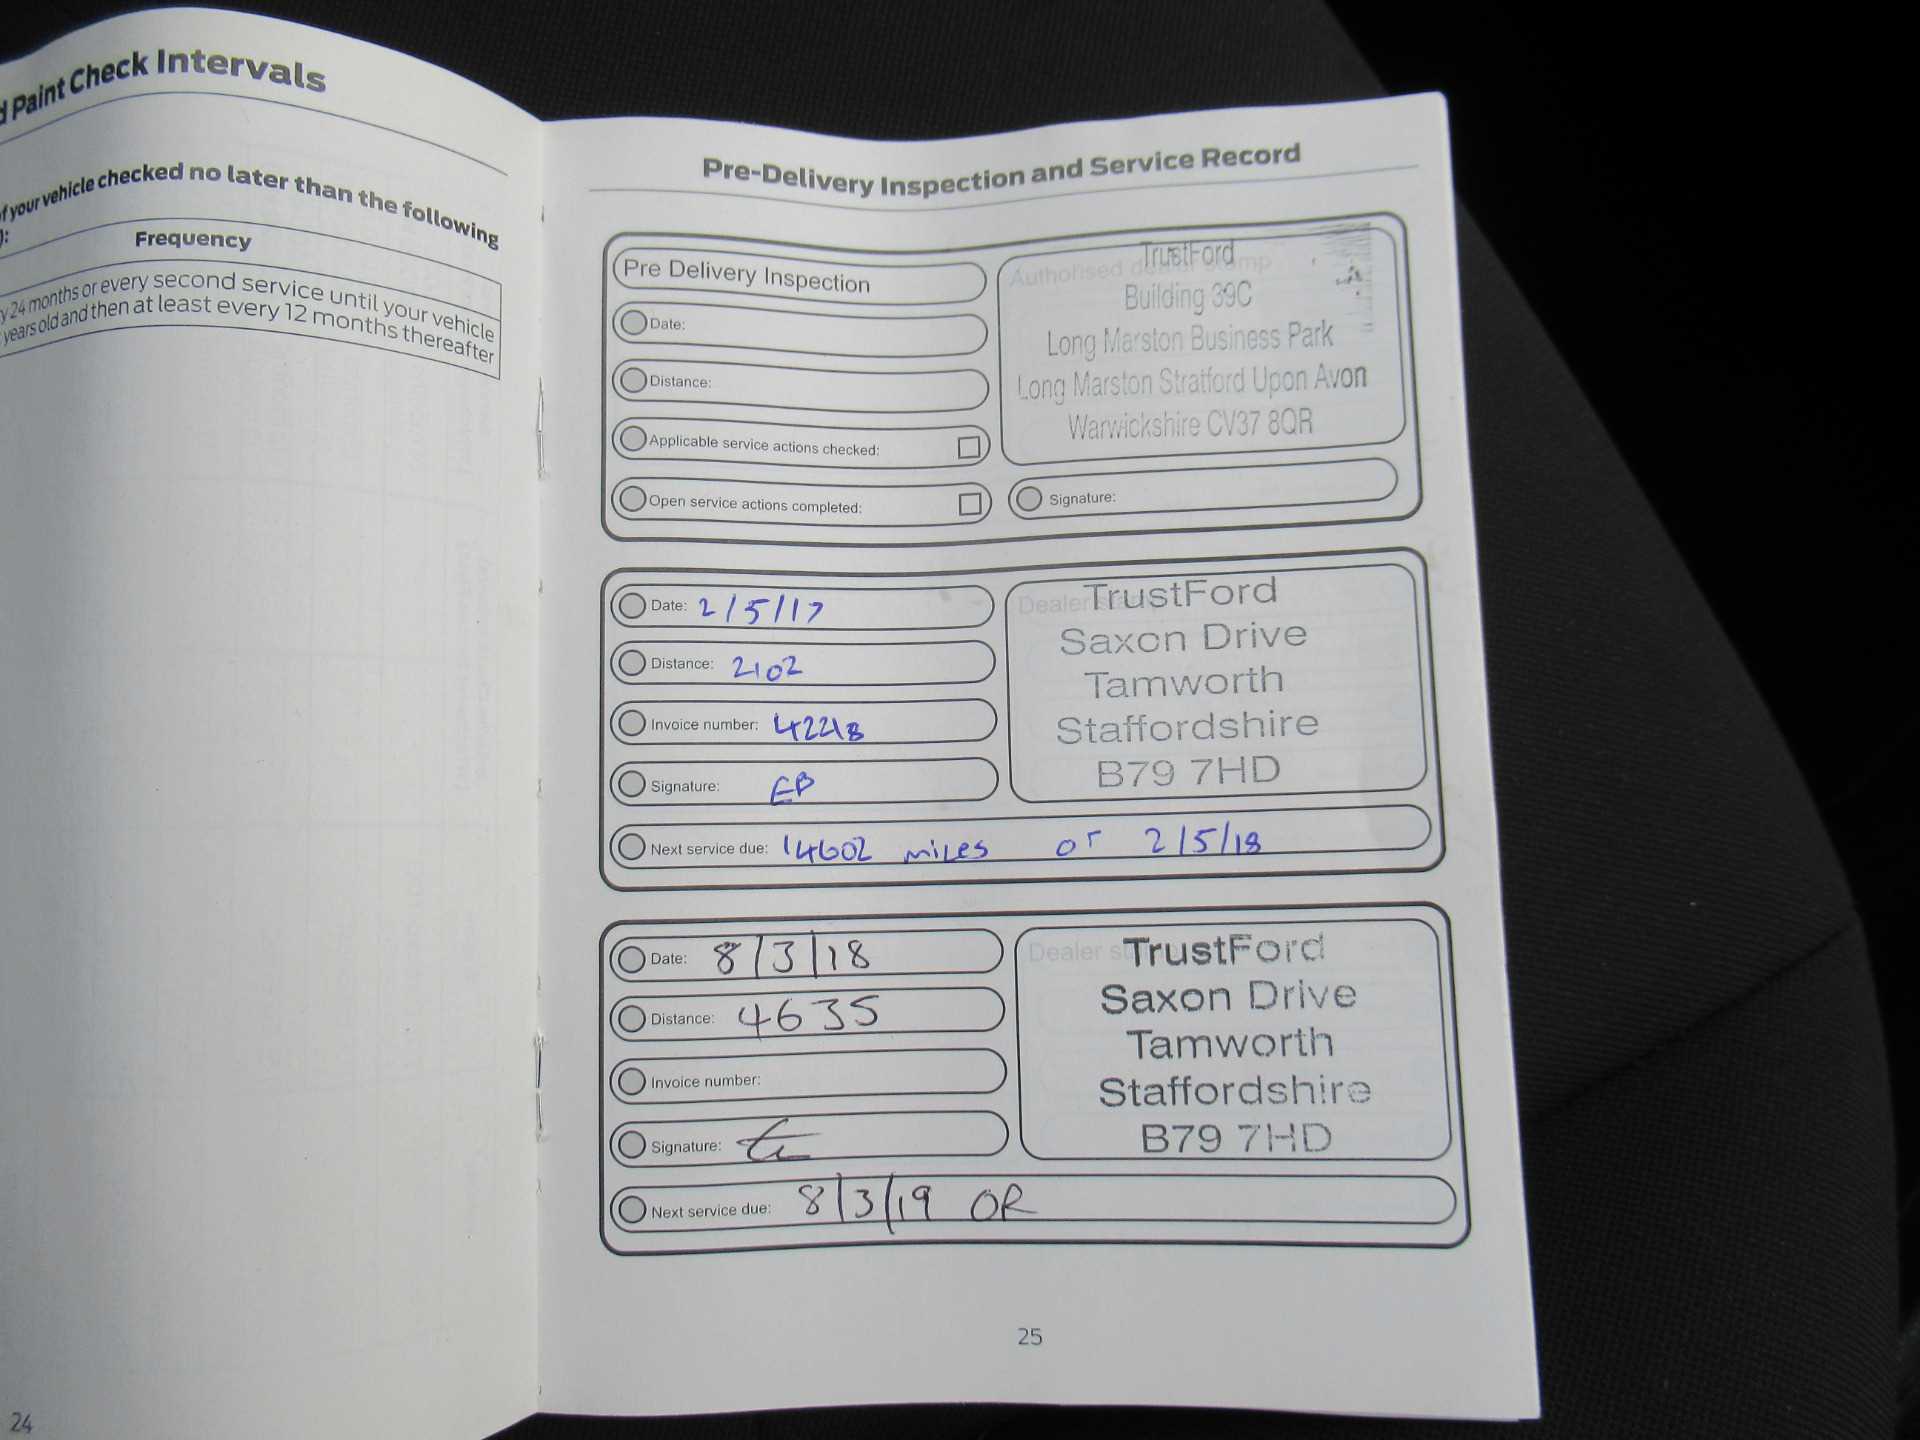 d Paint Check Intervals
of your vehicle checked no later than the following
):
Frequency
y 24 months or every second service until your vehicle
years old and then at least every 12 months thereafter
24
Pre-Delivery Inspection and Service Record
Pre Delivery Inspection
Date:
Distance:
Applicable service actions checked:
Open service actions completed:
Authorised dealer stamp
TrustFord
Building 39C
Long Marston Business Park
Long Marston Stratford Upon Avon
Warwickshire CV37 8QR
Signature:
Date: 2/5/17
Distance: 2102
Invoice number: 42218
Signature: EB
Dealer stamp
TrustFord
Saxon Drive
Tamworth
Staffordshire
B79 7HD
Next service due: 14602 miles or 2/5/18
Date: 8/3/18
Distance: 4635
Invoice number:
Signature:
Dealer stamp
TrustFord
Saxon Drive
Tamworth
Staffordshire
B79 7HD
Next service due: 8/3/19 OR
25